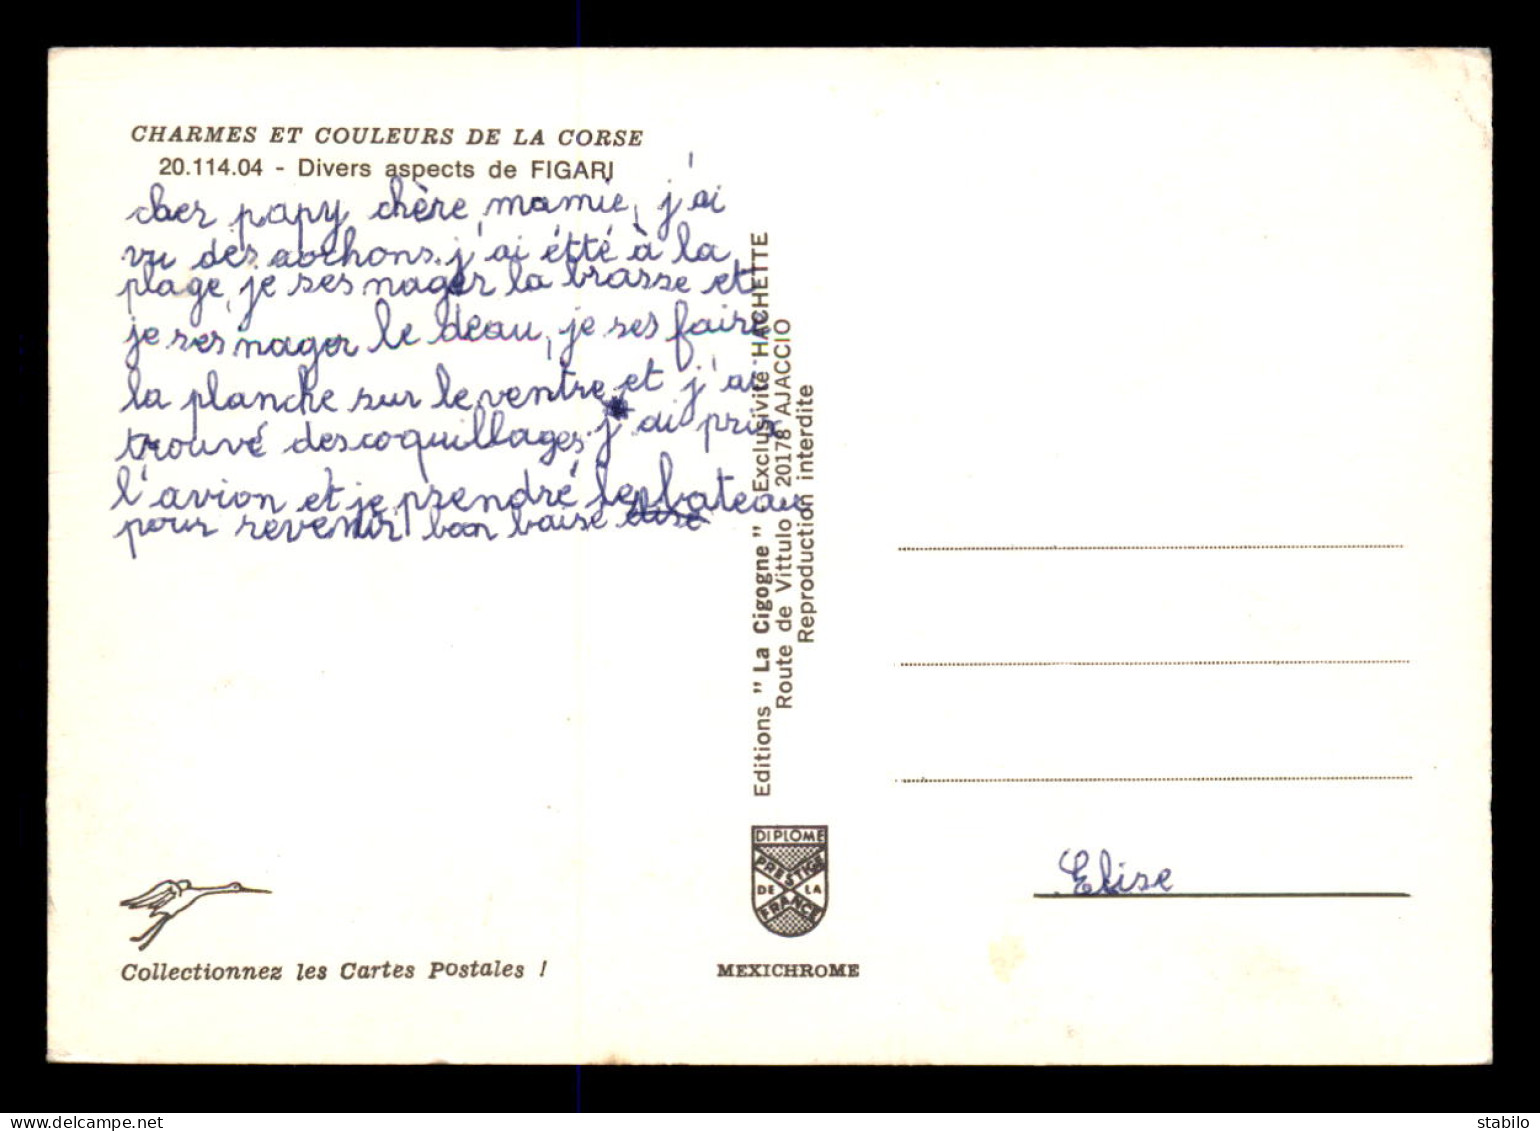 CHARMES ET COULEURS DE LA CORSE
20.114.04 - Divers aspects de FIGARI
cher papy chère mamie, j'ai
vu des cochons. j'ai étté à la
plage, je ses nager la brasse et
je ses nager le deau, je ses faire
la planche sur le ventre et j'ai
trouvé des coquillages. j'ai prix
l'avion et je prendré le bateau
pour revenir bon baise elise
Editions " La Cigogne " - Exclusivité HACHETTE
Route de Vittulo 20178 AJACCIO
Reproduction interdite
Elise
DIPLOME
PRESTIGE
DE LA
FRANCE
Collectionnez les Cartes Postales !
MEXICHROME
stabilo-4ever.delcampe.net